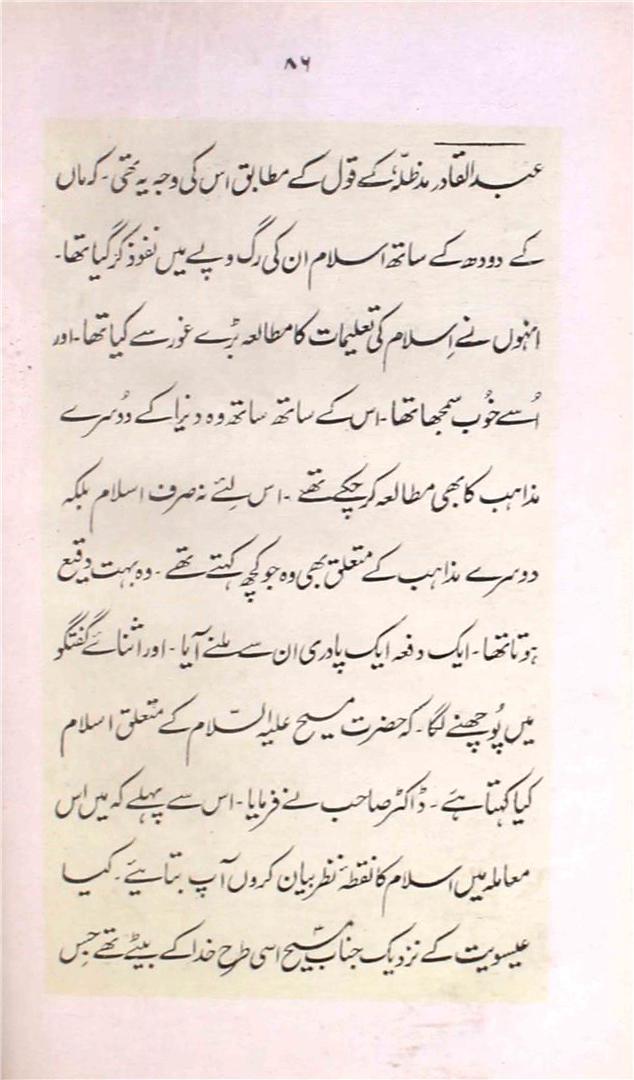 ۸۶
عبدالقادر مدظلہٗ کے قول کے مطابق اس کی وجہ یہ تھی۔ کہ ماں
کے دودھ کے ساتھ اسلام ان کی رگ و پے میں نفوذ کر گیا تھا۔
انہوں نے اِسلام کی تعلیمات کا مطالعہ بڑے غور سے کیا تھا۔ اور
اُسے خوُب سمجھا تھا۔ اس کے ساتھ ساتھ وہ دنیا کے دوُسرے
مذاہب کا بھی مطالعہ کر چکے تھے۔ اس لِئے نہ صرف اسلام بلکہ
دوسرے مذاہب کے متعلق بھی وہ جو کچھ کہتے تھے۔ وہ بہت وقیع
ہوتا تھا۔ ایک دفعہ ایک پادری ان سے ملنے آیا۔ اور اثنائے گفتگو
میں پوُچھنے لگا۔ کہ حضرت مسیح علیہ السّلام کے متعلق اسلام
کیا کہتا ہے۔ ڈاکٹر صاحب نے فرمایا۔ اس سے پہلے کہ میں اس
معاملہ میں اسلام کا نقطۂ نظر بیان کروں آپ بتائیے۔ کیا
عیسویت کے نزدیک جناب مسیحؑ اسی طرح خدا کے بیٹے تھے جِس